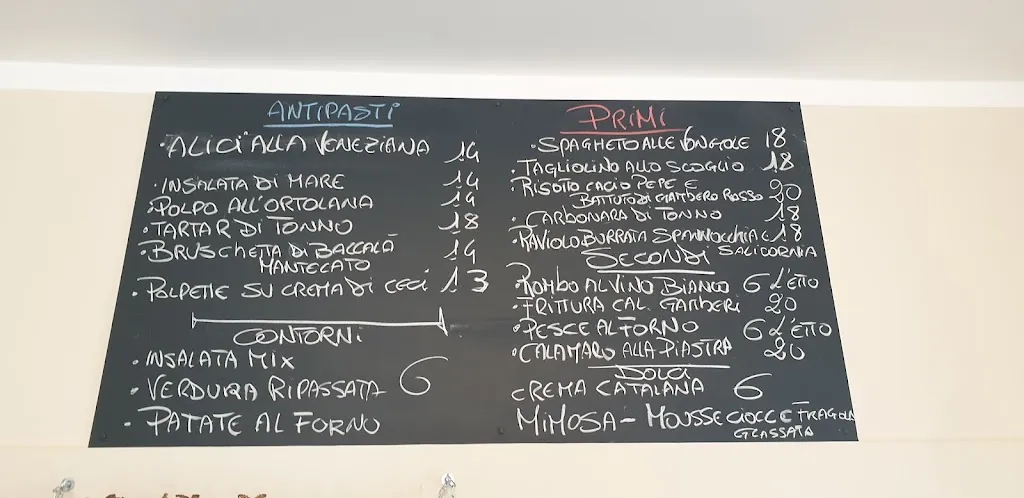 ANTIPASTI
·ALICI ALLA VENEZIANA 14
·INSALATA DI MARE 14
·POLPO ALL'ORTOLANA 14
·TARTAR DI TONNO 18
·BRUSCHETTA DI BACCALÀ 14
MANTECATO
·POLPETTE SU CREMA DI CECI 13
CONTORNI
·INSALATA MIX
·VERDURA RIPASSATA 6
·PATATE AL FORNO
PRIMI
·SPAGHETO ALLE VONGOLE 18
·TAGLIOLINO ALLO SCOGLIO 18
·RISOTO CACIO PEPE E 20
BATTUTO DI GAMBERO ROSSO
·CARBONARA DI TONNO 18
·RAVIOLO BURRATA SPANNOCCHIA E 18
SALICORNIA
SECONDI
·ROMBO AL VINO BIANCO 6 L'ETTO
·FRITTURA CAL. GAMBERI 20
·PESCE AL FORNO 6 L'ETTO
·CALAMARO ALLA PIASTRA 20
DOLCI
CREMA CATALANA 6
MIMOSA - MOUSSE CIOCC E FRAGOLA
GLASSATA